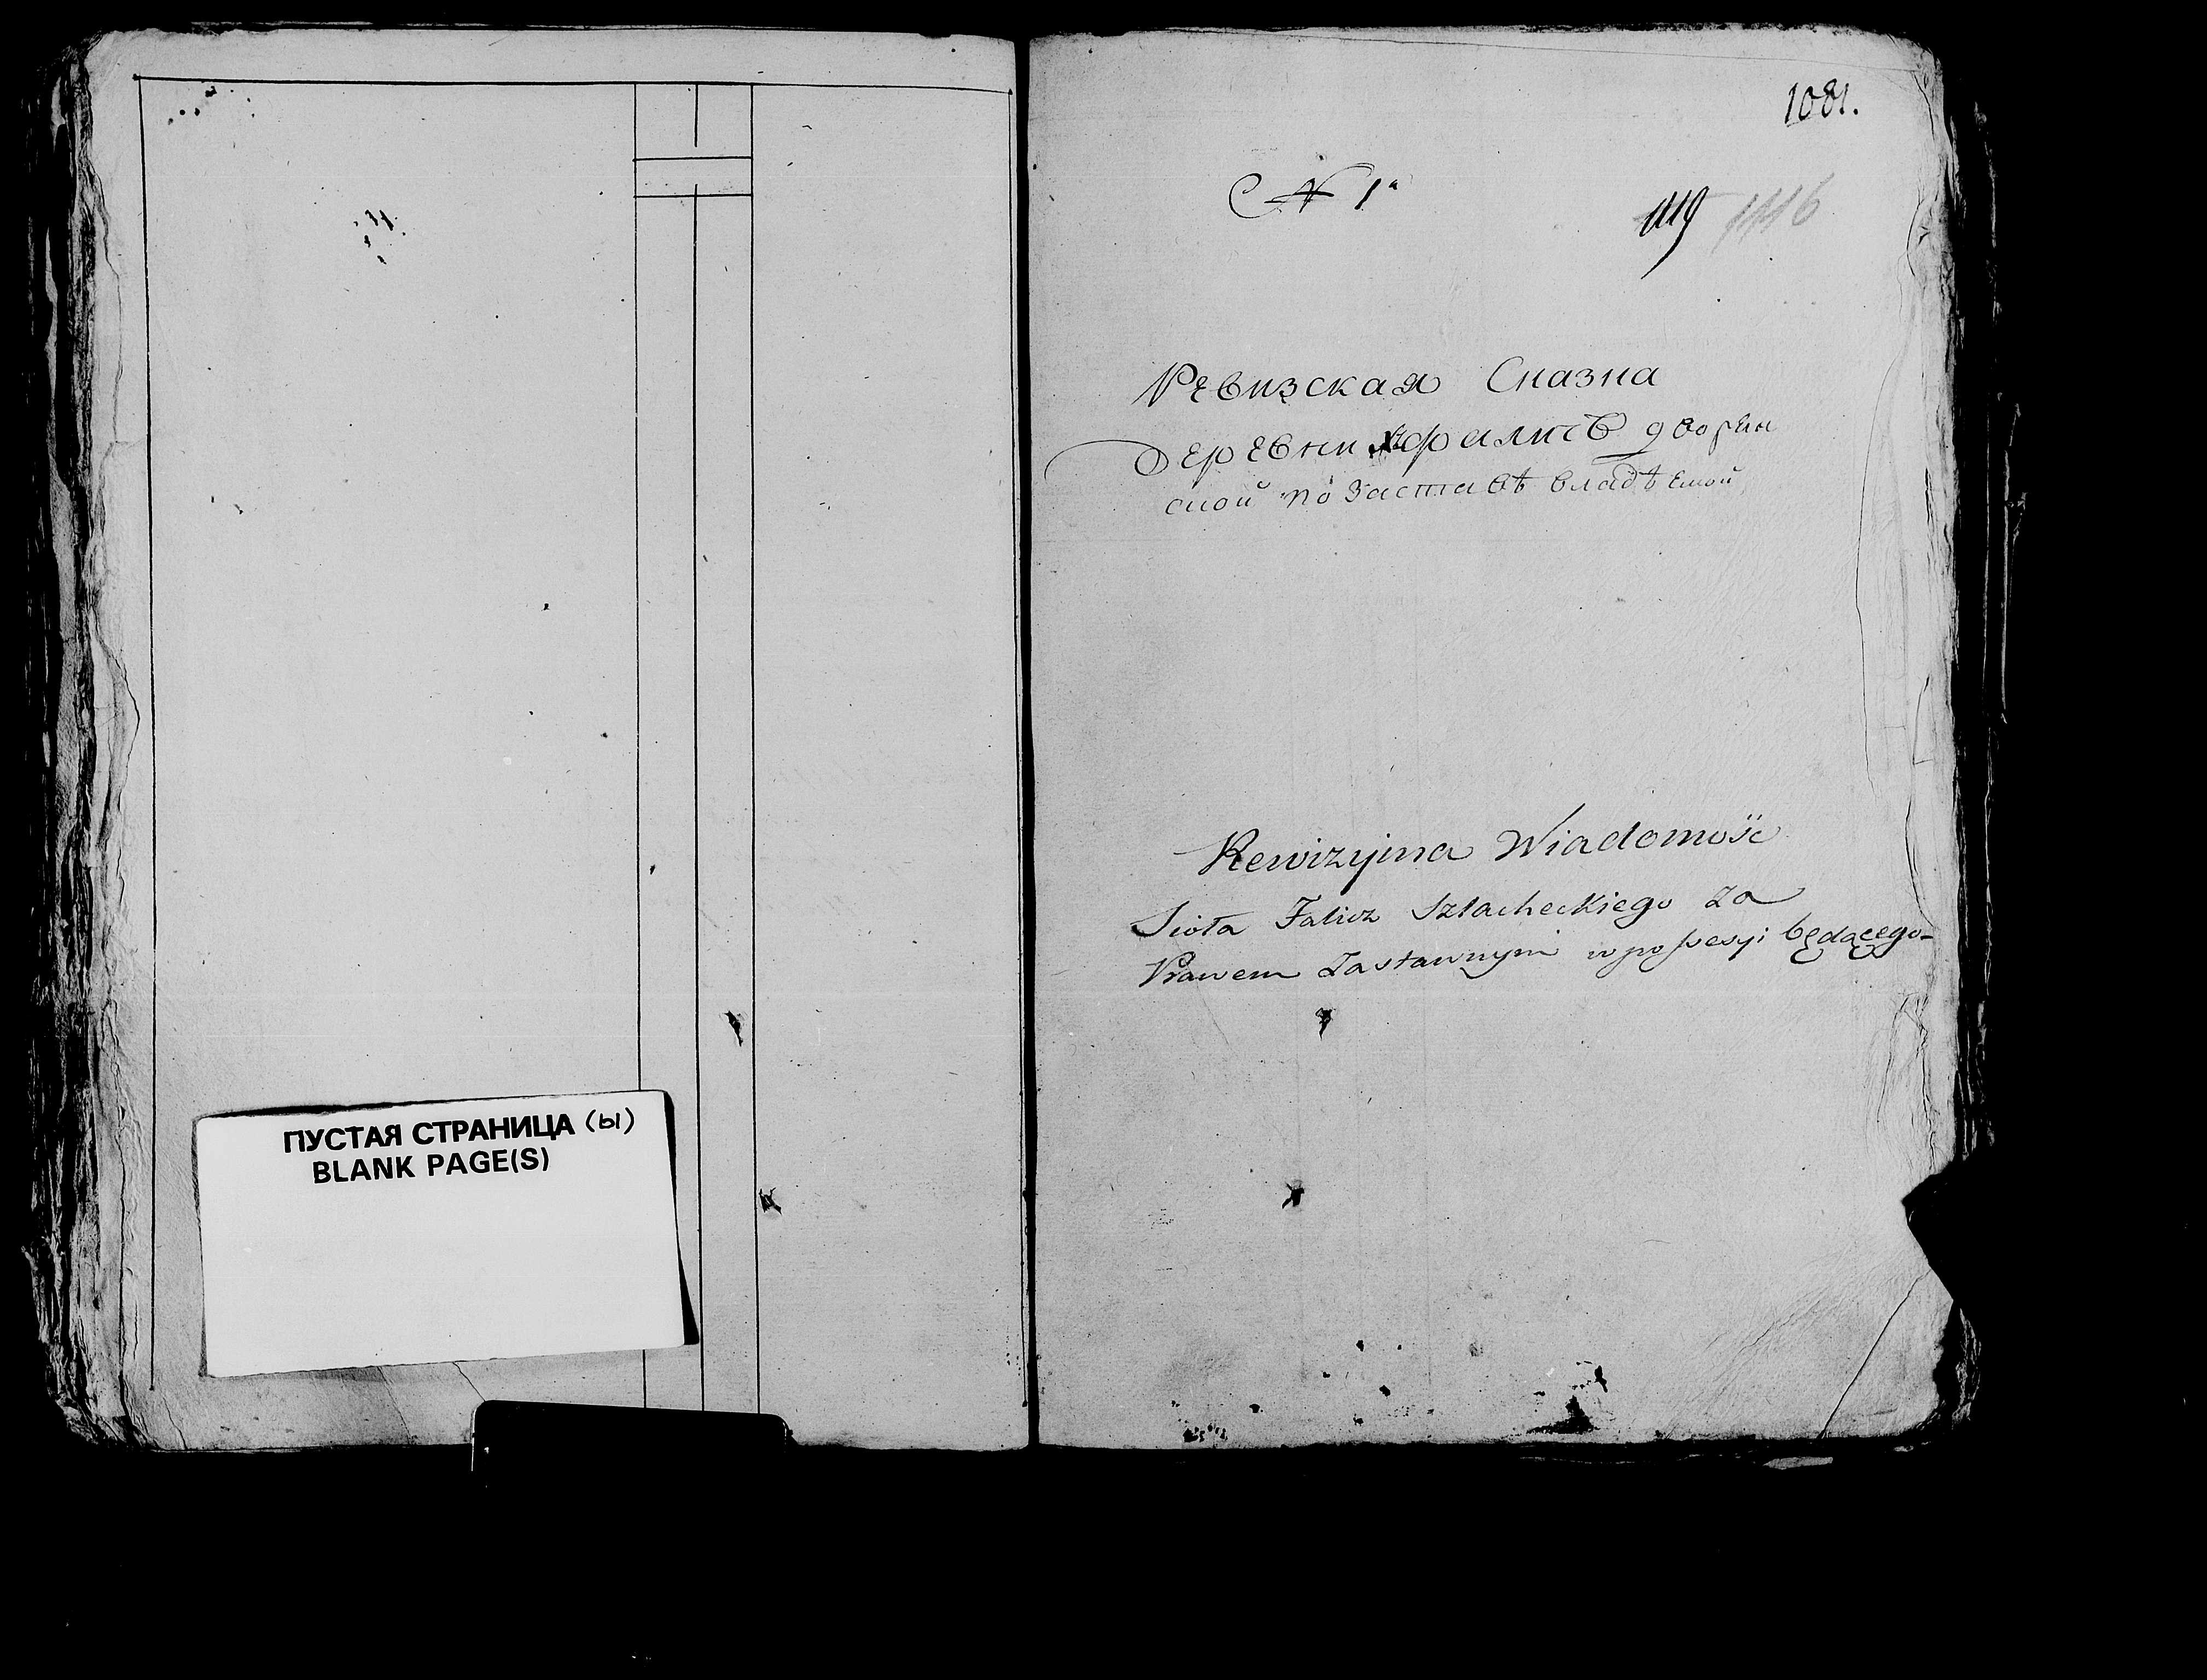 ПУСТАЯ СТРАНИЦА (ы)
BLANK PAGE(S)
1081.
N 1
1119 1116
Ревизская Сказка
Деревни Фаличъ дворян
ской по заставѣ владѣемой
Rewizyina Wiadomość
Sioła Falicz Szlacheckiego za
Prawem Zastawnym w possesyi będącego-